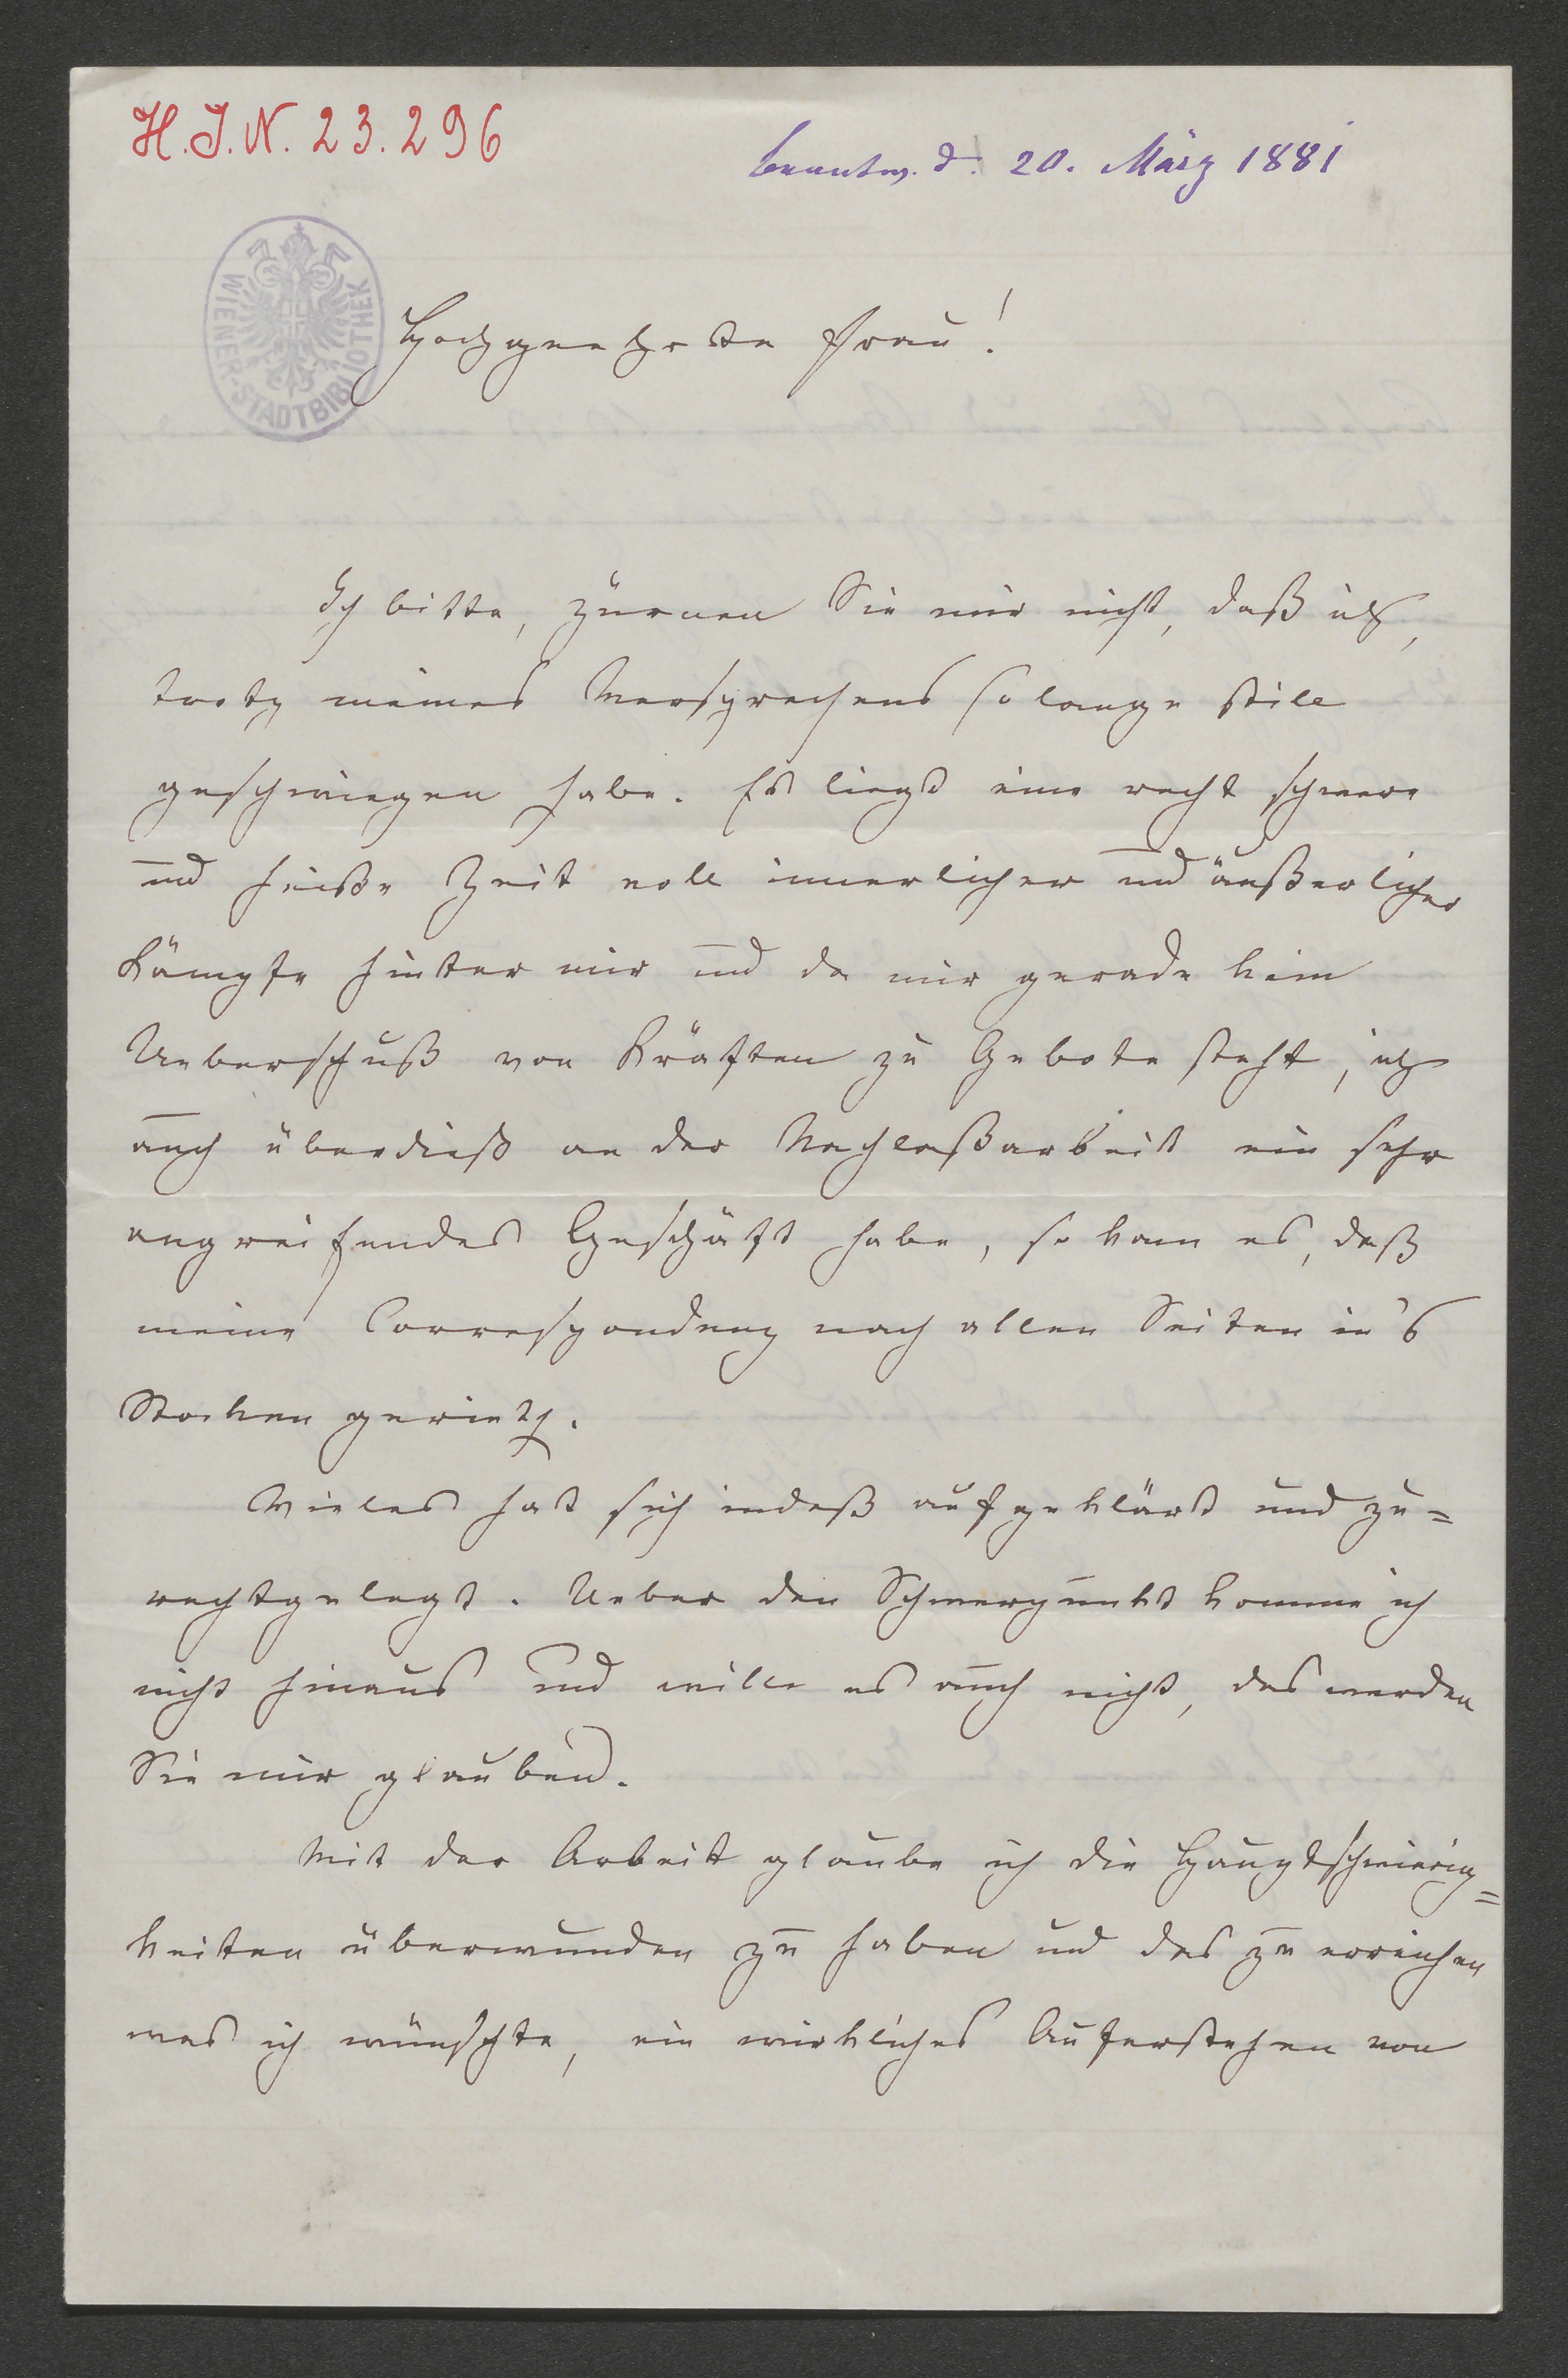 H. I. N. 23.296
beantw. d. 20. März 1881
WIENER-STADTBIBLIOTHEK
Hochgeehrte Frau!
Ich bitte, zürnen Sie mir nicht, daß ich,
trotz meines Versprechens so lange still
geschwiegen habe. Es liegt eine recht schwere
und heiße Zeit voll innerlicher und äußerlicher
Kämpfe hinter mir und da mir gerade kein
Ueberschuß von Kräften zu Gebote steht, ich
auch überdieß an der Nachlaßarbeit ein sehr
angreifendes Geschäft habe, so kam es, daß
meine Correspondenz nach allen Seiten in's
Stocken gerieth.
Vieles hat sich indeß aufgeklärt und zu=
rechtgelegt. Ueber den Schwerpunkt komme ich
nicht hinaus und will es auch nicht, das werden
Sie mir glauben.
Mit der Arbeit glaube ich die Hauptschwierig=
keiten überwunden zu haben und das zu erreichen
was ich wünschte, ein wirkliches Auferstehen von